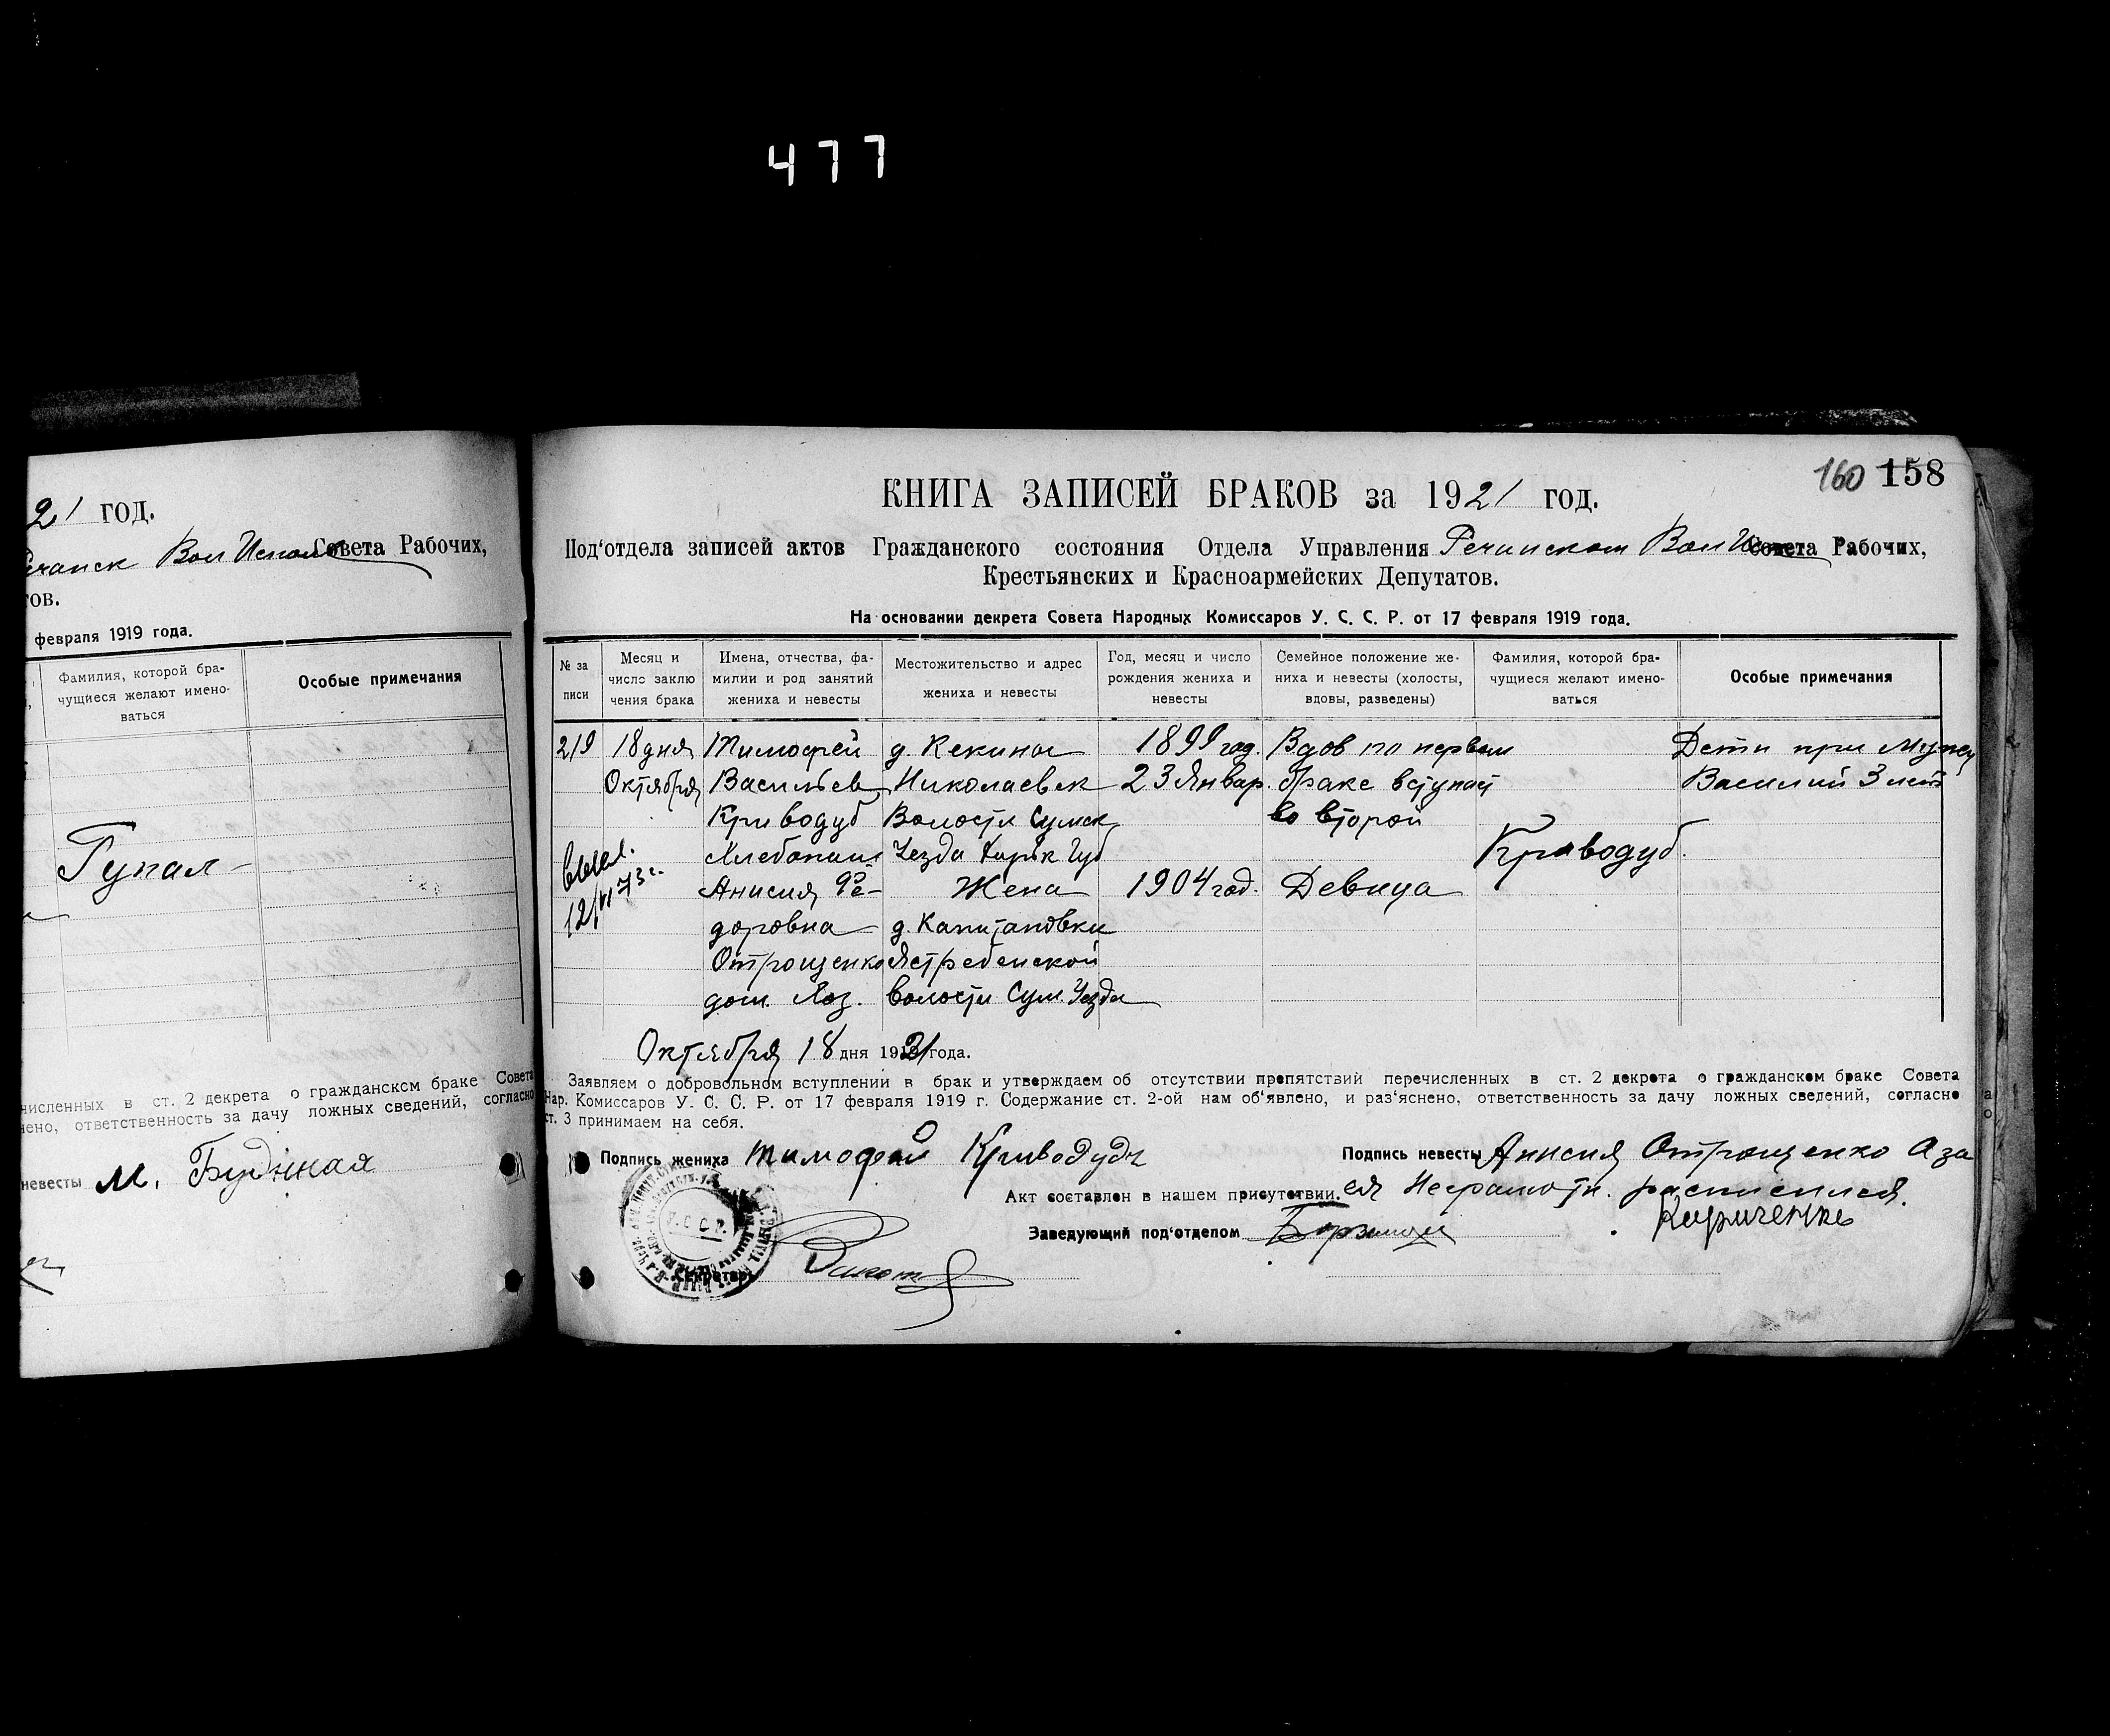 477
21 ГОД.
Вол Испол Совета Рабочих,
тов.
февраля 1919 года.
Фамилия, которой бра-
чущиеся желают имено-
ваться
Особые примечания
Гупал
численных в ст. 2 декрета о гражданском браке Совета
нено, ответственность за дачу ложных сведений, согласно
невесты М. Будnная
160 158
КНИГА ЗАПИСЕЙ БРАКОВ за 1921 год.
Под'отдела записей актов Гражданского состояния Отдела Управления Речинском Вол И Совета Рабочих,
Крестьянских и Красноармейских Депутатов.
На основании декрета Совета Народных Комиссаров У. С. С. Р. от 17 февраля 1919 года.
№ за
писи
Месяц и
число заклю
чения брака
Имена, отчества, фа-
милии и род занятий
жениха и невесты
Местожительство и адрес
жениха и невесты
Год, месяц и число
рождения жениха и
невесты
Семейное положение же-
ниха и невесты (холосты,
вдовы, разведены)
Фамилия, которой бра-
чущиеся желают имено-
ваться
Особые примечания
219
18 дня
Октября
Тимофей
Васильев
Криводуб
Хлебопаш
д. Кекина
Николаевск
Волости Сумск
Уезда Харьк Губ
1899 год.
23 Январ.
Вдов по первом
браке вступает
во второй
Дети при Мужу
Василий 3 лет
Криводуб.
12/VI 73 г.
Анисия Фе-
доровна
Отрощенко
дом. Хоз.
Жена
д. Капитановки
Ястребенской
волости Сум Уезда
1904 год.
Девица
Октября 18 дня 1921 года.
Заявляем о добровольном вступлении в брак и утверждаем об отсутствии препятствий перечисленных в ст. 2 декрета о гражданском браке Совета
Нар. Комиссаров У. С. С. Р. от 17 февраля 1919 г. Содержание ст. 2-ой нам об'явлено, и раз'яснено, ответственность за дачу ложных сведений, согласно
ст. 3 принимаем на себя.
Подпись жениха Тимофей Криводуб
Подпись невесты Анисия Отрощенко А за
Акт составлен в нашем присутствии.
ея Неграмотн. расписался.
Кириченко
Заведующий под'отделом
Секретарь